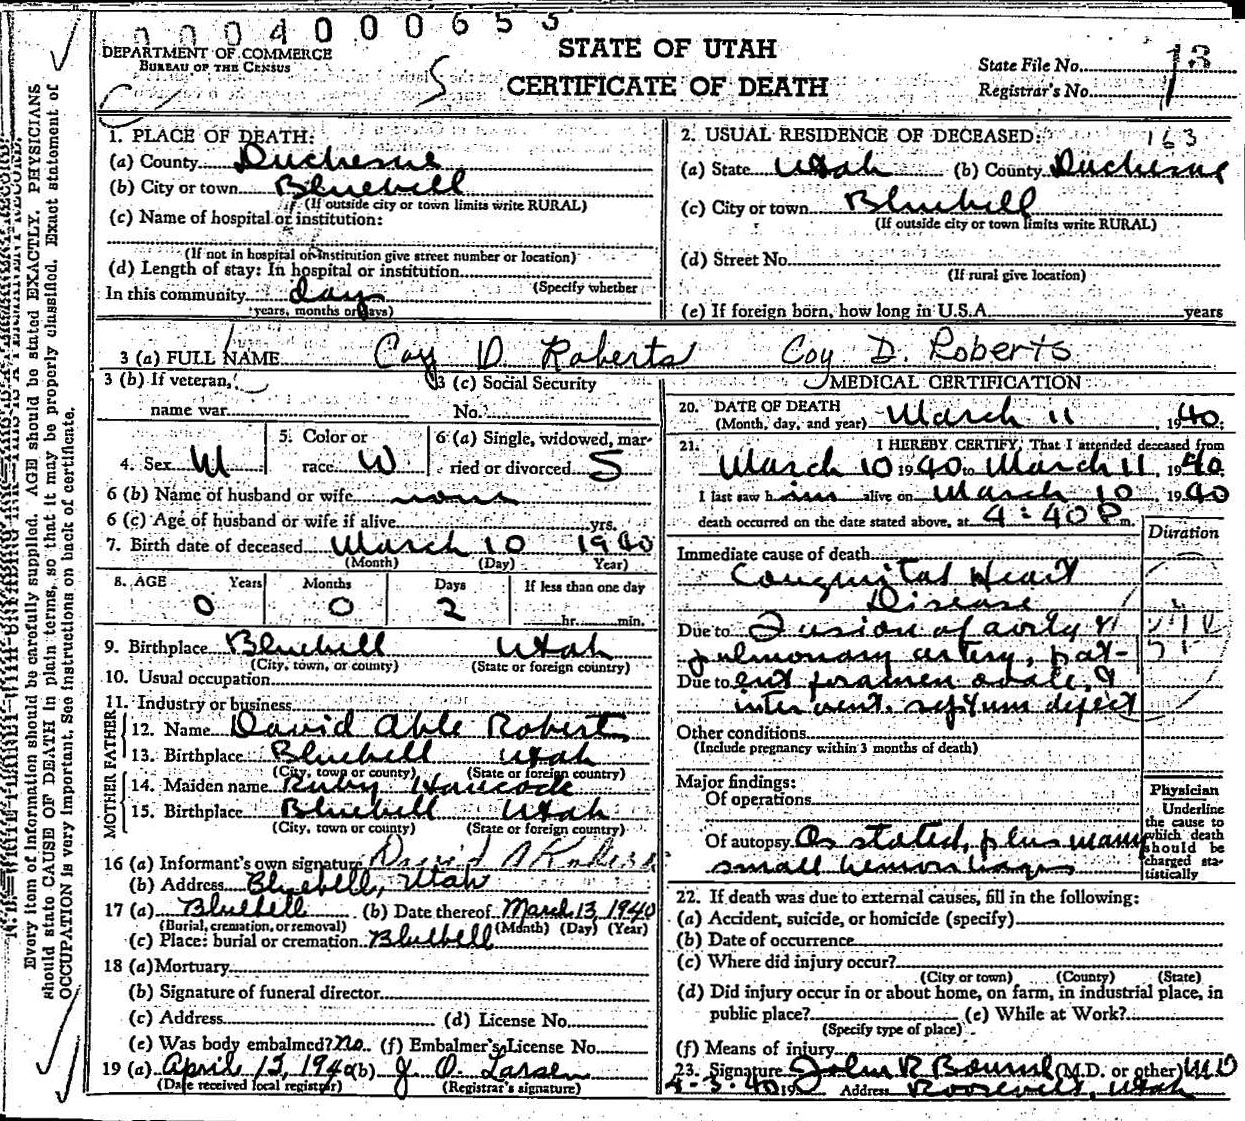 0004000655
DEPARTMENT OF COMMERCE
BUREAU OF THE CENSUS
STATE OF UTAH
CERTIFICATE OF DEATH
State File No. 13
Registrar's No.
163
1. PLACE OF DEATH:
(a) County Duchesne
(b) City or town Bluebell
(If outside city or town limits write RURAL)
(c) Name of hospital or institution:
(If not in hospital or institution give street number or location)
(d) Length of stay: In hospital or institution
(Specify whether
In this community day
years, months or days)
2. USUAL RESIDENCE OF DECEASED:
(a) State Utah (b) County Duchesne
(c) City or town Bluebell
(If outside city or town limits write RURAL)
(d) Street No.
(If rural give location)
(e) If foreign born, how long in U.S.A. years
3 (a) FULL NAME Coy D. Roberts Coy D. Roberts
3 (b) If veteran, 3 (c) Social Security
name war No.
4. Sex M 5. Color or race W 6 (a) Single, widowed, married or divorced S
6 (b) Name of husband or wife none
6 (c) Age of husband or wife if alive yrs.
7. Birth date of deceased March 10 1940
(Month) (Day) Year)
8. AGE Years Months Days If less than one day
0 0 2 hr. min.
9. Birthplace Bluebell Utah
(City, town, or county) (State or foreign country)
10. Usual occupation
11. Industry or business
FATHER
12. Name David Able Roberts
13. Birthplace Bluebell Utah
(City, town or county) (State or foreign country)
MOTHER
14. Maiden name Ruby Hancock
15. Birthplace Bluebell Utah
(City, town or county) (State or foreign country)
16 (a) Informant's own signature David A Roberts
(b) Address Bluebell, Utah
17 (a) Bluebell (b) Date thereof March 13, 1940
(Burial, cremation, or removal) (Month) (Day) (Year)
(c) Place: burial or cremation Bluebell
18 (a) Mortuary
(b) Signature of funeral director
(c) Address (d) License No.
(e) Was body embalmed? no (f) Embalmer's License No.
19 (a) April 13, 1940 (b) J. O. Larsen
(Date received local registrar) (Registrar's signature)
MEDICAL CERTIFICATION
20. DATE OF DEATH
(Month, day, and year) March 11, 1940.
21. I HEREBY CERTIFY, That I attended deceased from
March 10 1940 to March 11, 1940.
I last saw him alive on March 10 1940
death occurred on the date stated above, at 4:40 P m.
Duration
Immediate cause of death
Congenital Heart
Disease
Due to Fusion of aorta &
pulmonary artery, pat-
Due to ent foramen ovale, &
intervent. septum defect
Other conditions
(Include pregnancy within 3 months of death)
Major findings:
Of operations
Of autopsy As stated, plus many
small hemorrhages
Physician
Underline
the cause to
which death
should be
charged sta-
tistically
22. If death was due to external causes, fill in the following:
(a) Accident, suicide, or homicide (specify)
(b) Date of occurrence
(c) Where did injury occur?
(City or town) (County) (State)
(d) Did injury occur in or about home, on farm, in industrial place, in
public place? (e) While at Work?
(Specify type of place)
(f) Means of injury
23. Signature John R (M.D. or other) MD
4-3-40 19 Address Roosevelt, Utah
Every item of information should be carefully supplied. AGE should be stated EXACTLY. PHYSICIANS
should state CAUSE OF DEATH in plain terms, so that it may be properly classified. Exact statement of
OCCUPATION is very important. See instructions on back of certificate.